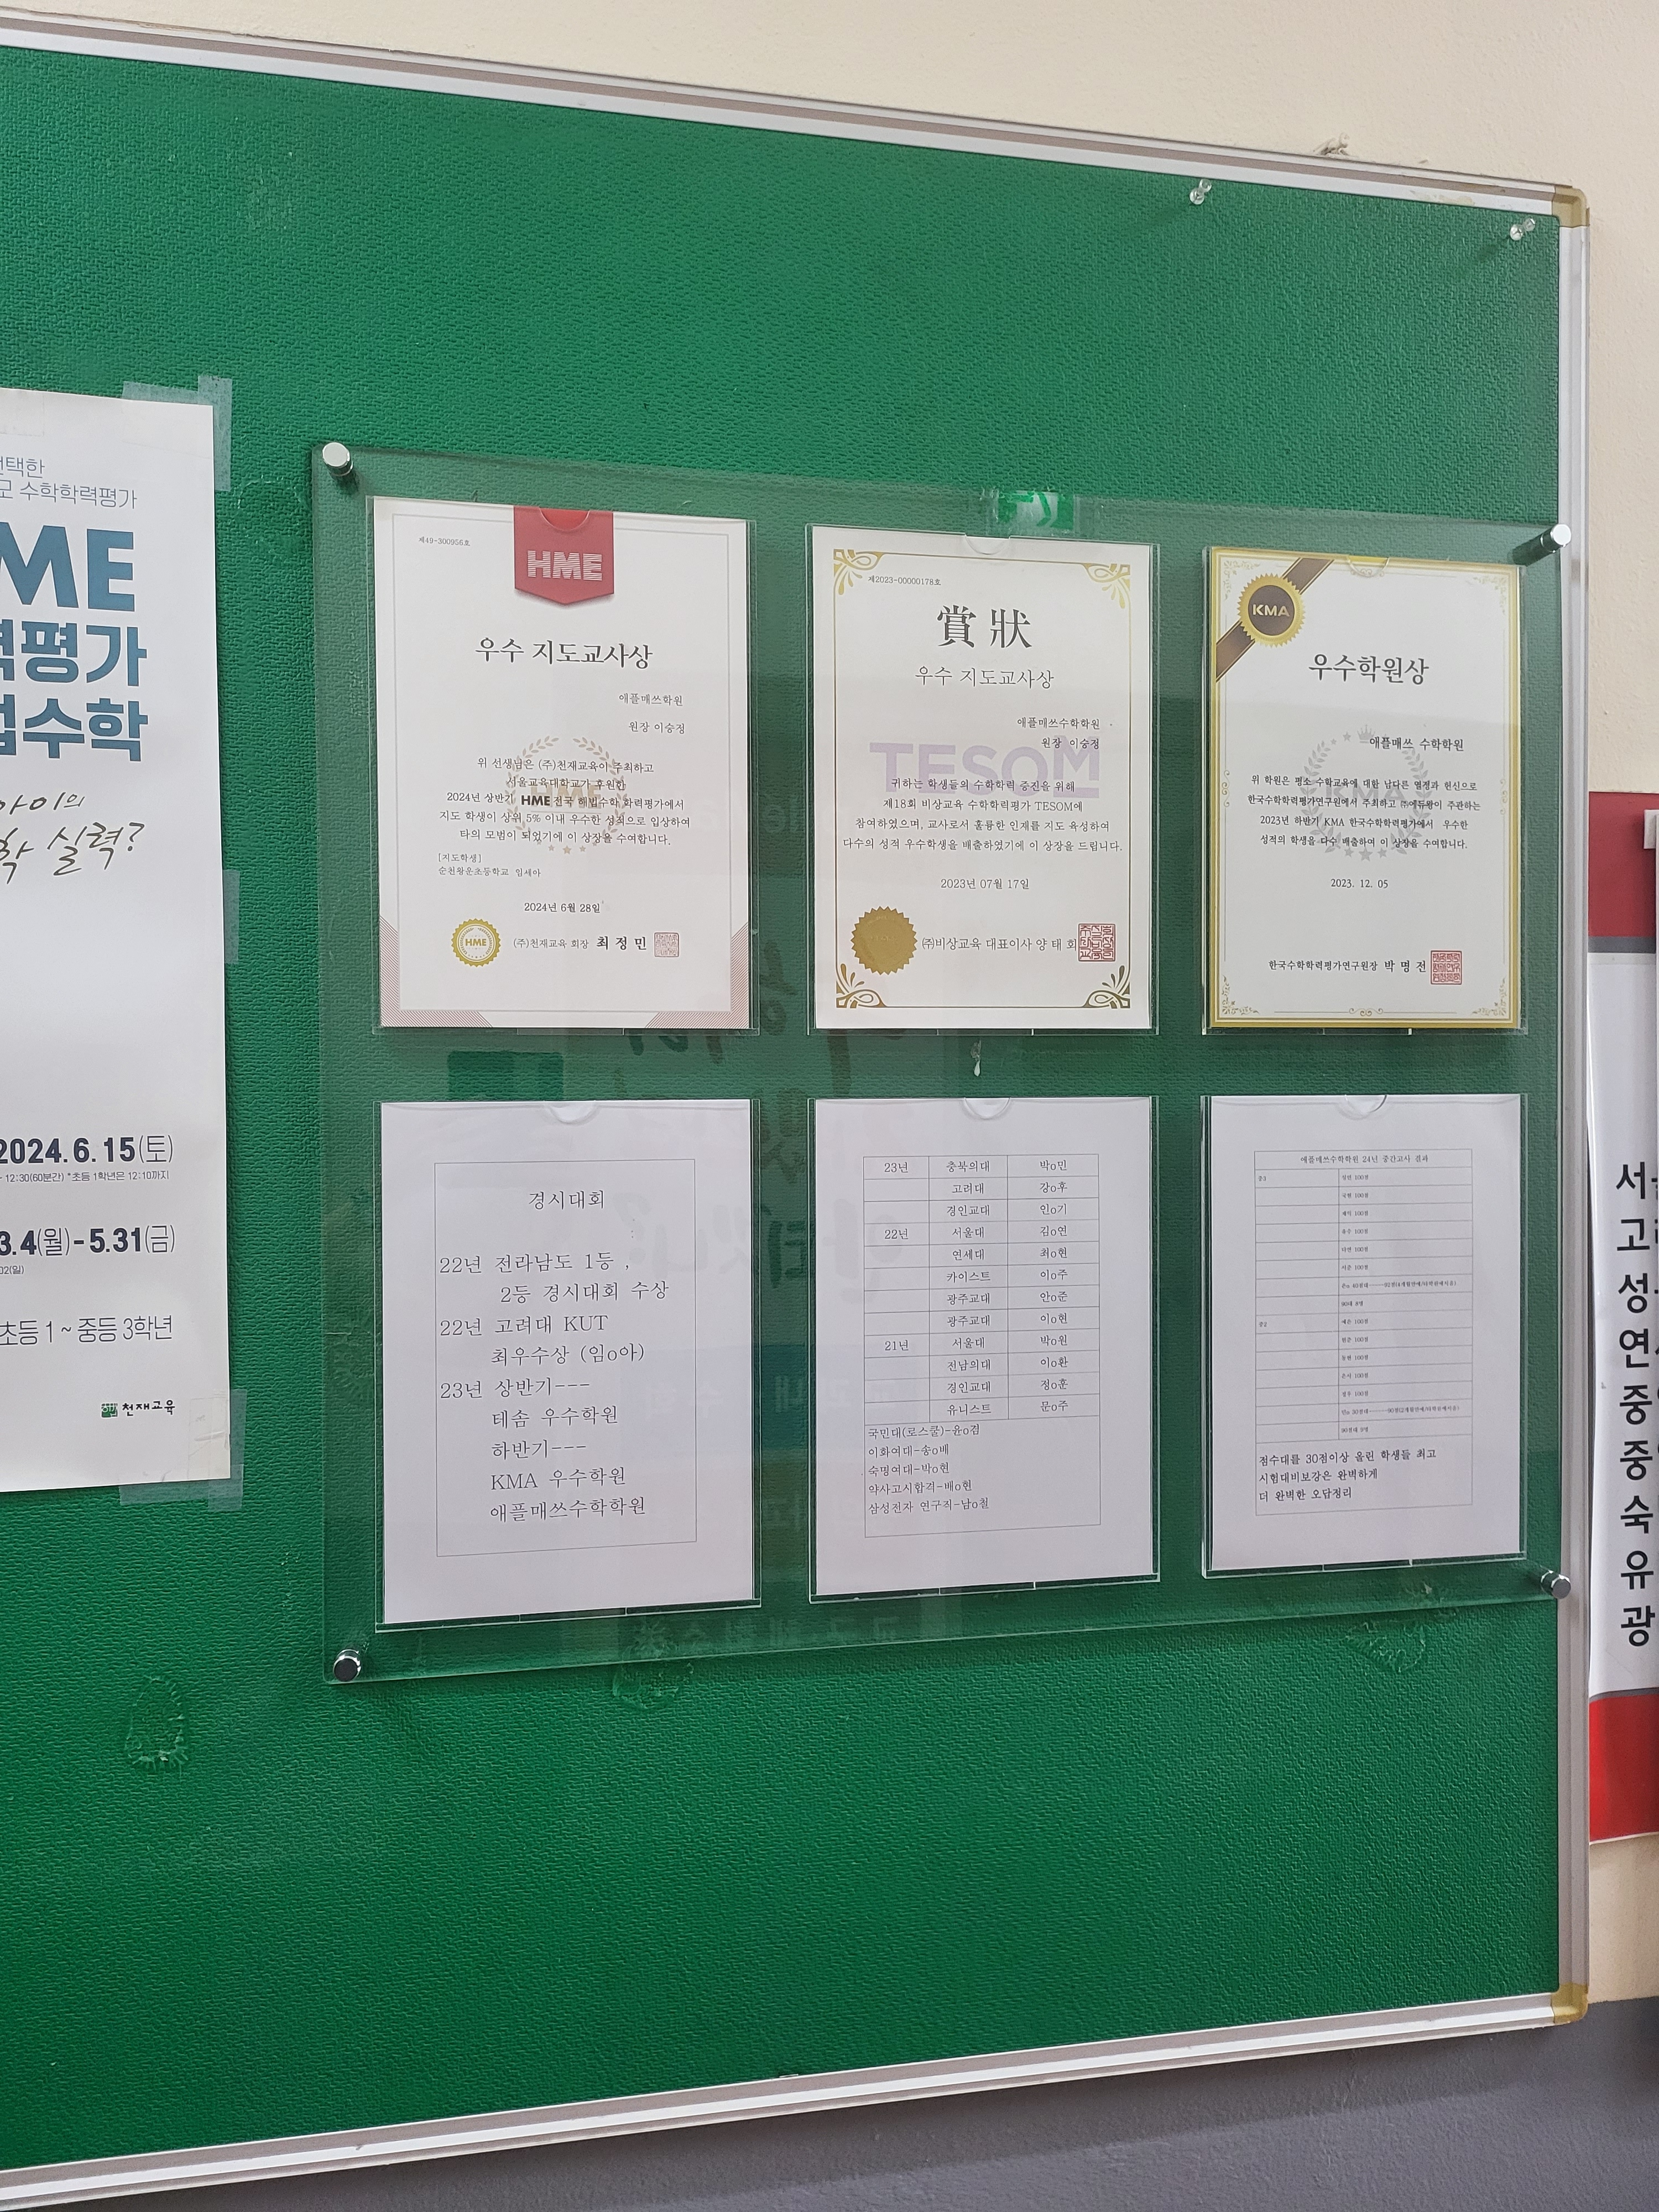 선택한
수학학력평가
ME
력평가
법수학
아이의
학 실력?
2024.6.15(토)
12:30(60분간) *초등 1학년은 12:10까지
3.4(월)-5.31(금)
초등 1 ~ 중등 3학년
천재교육
제49-300956호
HME
우수 지도교사상
애플매쓰학원
원장 이승정
위 선생님은 (주)천재교육이 주최하고
서울교육대학교가 후원한
2024년 상반기 HME 전국 해법수학 학력평가에서
지도 학생이 상위 5% 이내 우수한 성적으로 입상하여
타의 모범이 되었기에 이 상장을 수여합니다.
[지도학생]
순천왕운초등학교 임세아
2024년 6월 28일
HME
(주)천재교육 회장 최 정 민
제2023-00000178호
賞 狀
우수 지도교사상
애플매쓰수학학원
원장 이승정
TESOM
귀하는 학생들의 수학학력 증진을 위해
제18회 비상교육 수학학력평가 TESOM에
참여하였으며, 교사로서 훌륭한 인재를 지도 육성하여
다수의 성적 우수학생을 배출하였기에 이 상장을 드립니다.
2023년 07월 17일
㈜비상교육 대표이사 양 태 회
KMA
우수학원상
애플매쓰 수학학원
위 학원은 평소 수학교육에 대한 남다른 열정과 헌신으로
한국수학학력평가연구원에서 주최하고 ㈜에듀왕이 주관하는
2023년 하반기 KMA 한국수학학력평가에서 우수한
성적의 학생을 다수 배출하여 이 상장을 수여합니다.
2023. 12. 05
한국수학학력평가연구원장 박 명 전
경시대회
22년 전라남도 1등 ,
2등 경시대회 수상
22년 고려대 KUT
최우수상 (임o아)
23년 상반기---
테솜 우수학원
하반기---
KMA 우수학원
애플매쓰수학학원
23년 충북의대 박o민
고려대 강o후
경인교대 인o기
22년 서울대 김o연
연세대 최o현
카이스트 이o주
광주교대 안o준
광주교대 이o현
21년 서울대 박o원
전남의대 이o환
경인교대 정o훈
유니스트 문o주
국민대(로스쿨)-윤o겸
이화여대-송o배
숙명여대-박o현
약사고시합격-배o현
삼성전자 연구직-남o철
애플매쓰수학학원 24년 중간고사 결과
100점
100점
100점
100점
100점
100점
90대 8명
100점
100점
100점
100점
100점
점수대를 30점이상 올린 학생들 최고
시험대비보강은 완벽하게
더 완벽한 오답정리
서
고
성
연
중
중
숙
유
광